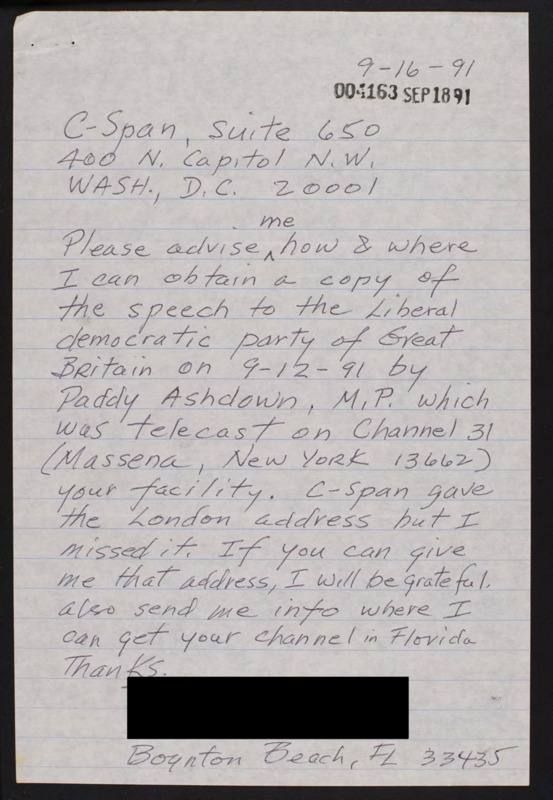 9-16-91
004163 SEP 18 91
C-Span, Suite 650
400 N. Capitol N.W.
WASH., D.C. 20001
me
Please advise ^ how & where
I can obtain a copy of
the speech to the Liberal
democratic party of Great
Britain on 9-12-91 by
Paddy Ashdown, M.P. which
was telecast on Channel 31
(Massena, New York 13662)
your facility. C-Span gave
the London address but I
missed it. If you can give
me that address, I will be grateful.
also send me info where I
can get your channel in Florida
Thanks.
Boynton Beach, FL 33435